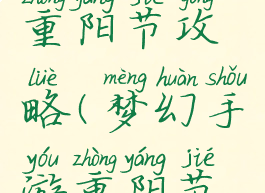 zhòng yáng jié gōng
重阳节攻
lüè mèng huàn shǒu
略(梦幻手
yóu zhòng yáng jié
游重阳节